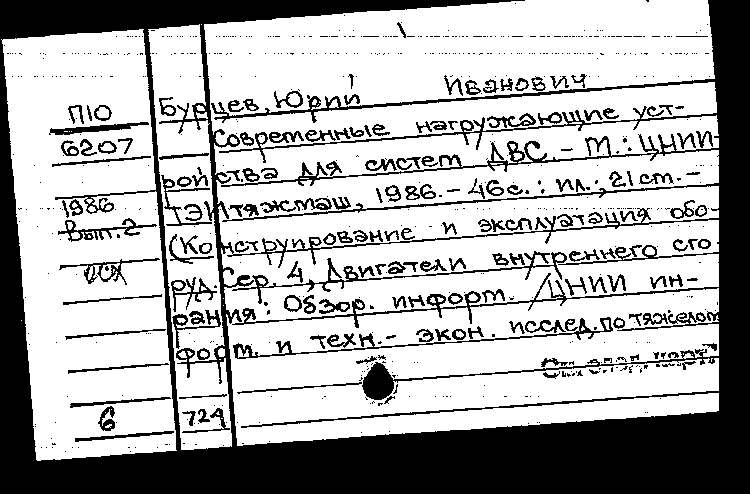 П10 Бурцев, Юрий Иванович
6207 Современные нагружающие уст-
ройства для систем ДВС. – М.: ЦНИИ-
1986 ТЭИтяжмаш, 1986. – 46с.: ил.; 21 см. –
Вып.2 (Конструирование и эксплуатация обо-
руд. Сер. 4, Двигатели внутреннего сго-
рания: Обзор. информ. / ЦНИИ ин-
форм. и техн.- экон. исслед. по тяжелом
См. след. карт.
6 724